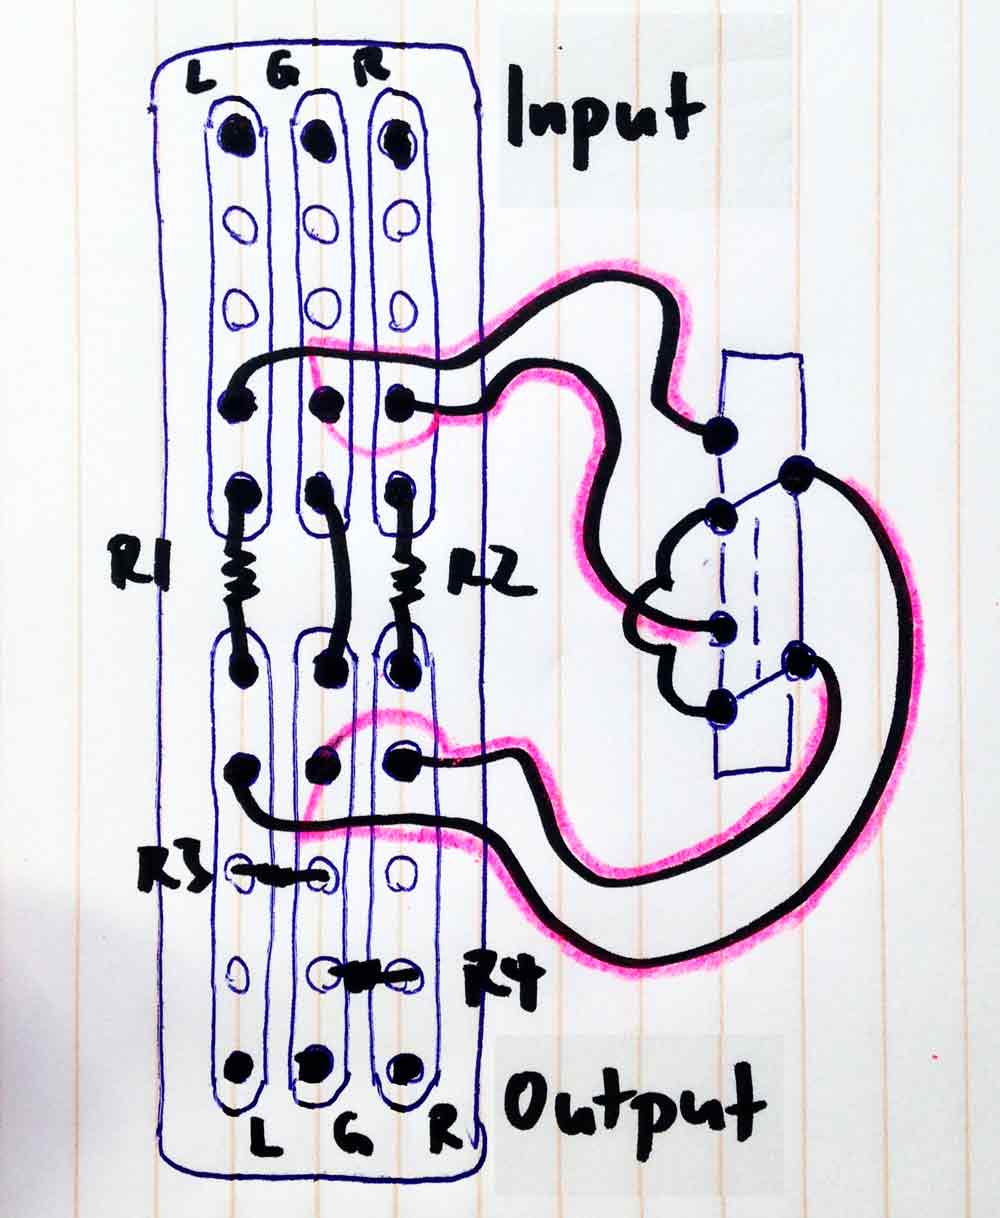 L G R
Input
R1
R2
R3
R4
Output
L G R